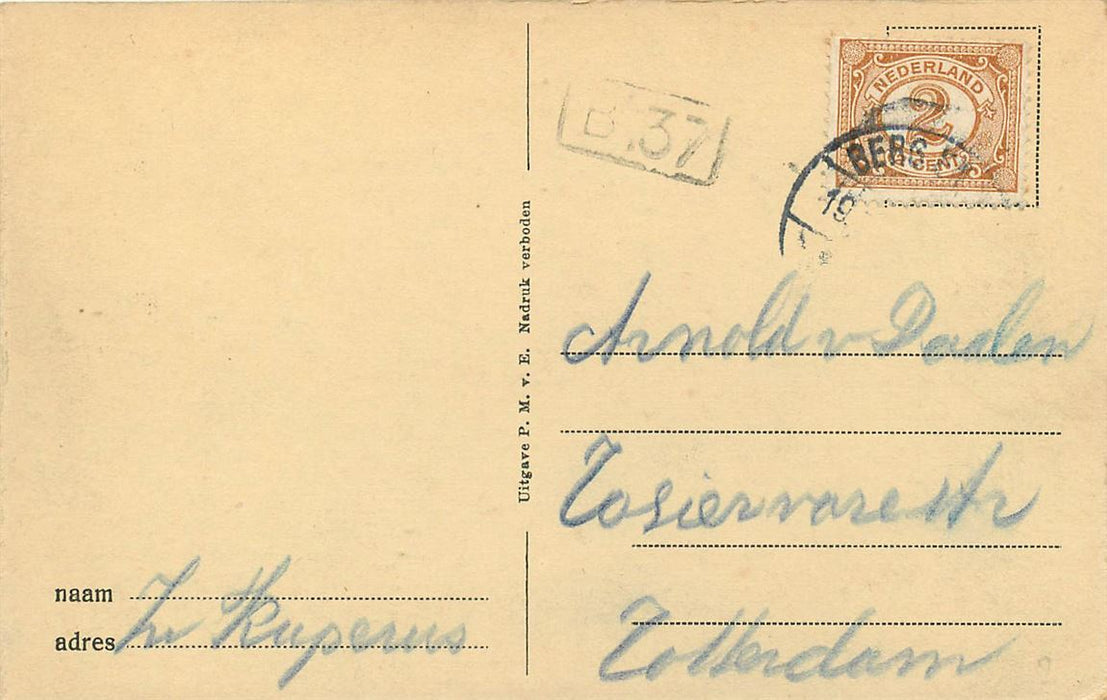 NEDERLAND
2
CENT
BERG
19
B.37
Uitgave P. M. v. E. Nadruk verboden
Arnold v Dalen
Rotterdam
naam Zr Kuperus
adres